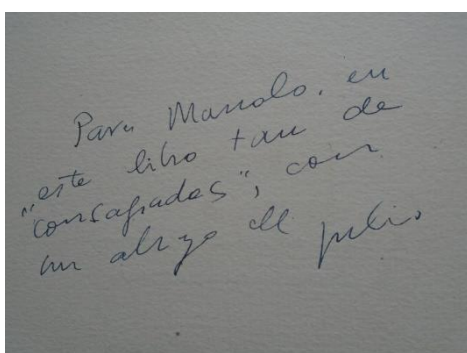 Para Manolo, en
este libro tan de
"consagrados", con
un abrazo de Julio